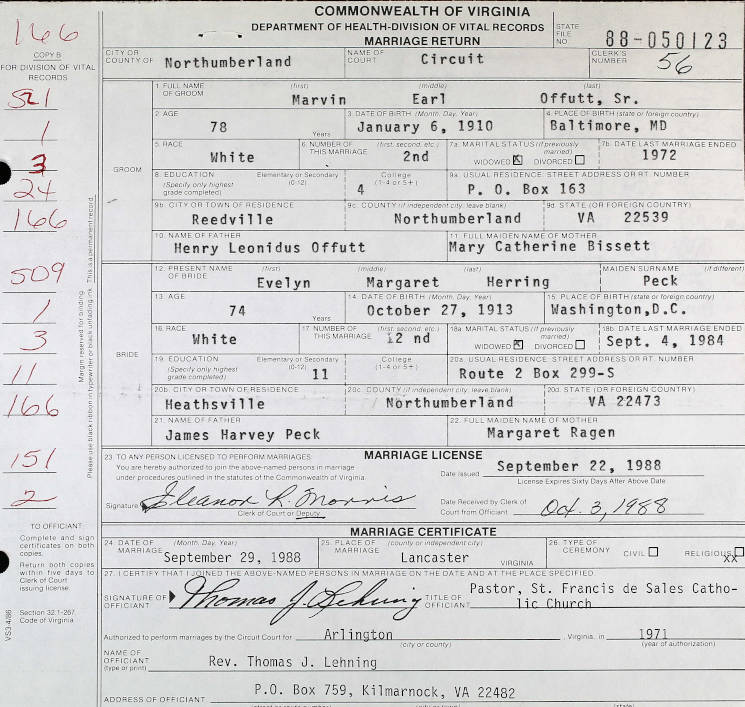 COMMONWEALTH OF VIRGINIA
DEPARTMENT OF HEALTH-DIVISION OF VITAL RECORDS
MARRIAGE RETURN
STATE FILE NO. 88-050123
166
COPY B
FOR DIVISION OF VITAL RECORDS
CITY OR COUNTY OF Northumberland
NAME OF COURT Circuit
CLERK'S NUMBER 56
521
1
3
24
166
509
1
3
11
166
151
2
Margin reserved for binding.
Please use black ribbon in typewriter or black unfading ink. This is a permanent record.
GROOM
1. FULL NAME OF GROOM (first) Marvin (middle) Earl (last) Offutt, Sr.
2. AGE 78 Years
3. DATE OF BIRTH (Month, Day, Year) January 6, 1910
4. PLACE OF BIRTH (state or foreign country) Baltimore, MD
5. RACE White
6. NUMBER OF THIS MARRIAGE (first, second, etc.) 2nd
7a. MARITAL STATUS (If previously married) WIDOWED X DIVORCED
7b. DATE LAST MARRIAGE ENDED 1972
8. EDUCATION (Specify only highest grade completed) Elementary or Secondary (0-12) College (1-4 or 5+) 4
9a. USUAL RESIDENCE: STREET ADDRESS OR RT. NUMBER P. O. Box 163
9b. CITY OR TOWN OF RESIDENCE Reedville
9c. COUNTY (if independent city, leave blank) Northumberland
9d. STATE (OR FOREIGN COUNTRY) VA 22539
10. NAME OF FATHER Henry Leonidus Offutt
11. FULL MAIDEN NAME OF MOTHER Mary Catherine Bissett
BRIDE
12. PRESENT NAME OF BRIDE (first) Evelyn (middle) Margaret (last) Herring
MAIDEN SURNAME (if different) Peck
13. AGE 74 Years
14. DATE OF BIRTH (Month, Day, Year) October 27, 1913
15. PLACE OF BIRTH (state or foreign country) Washington,D.C.
16. RACE White
17. NUMBER OF THIS MARRIAGE (first, second, etc.) 2 nd
18a. MARITAL STATUS (If previously married) WIDOWED X DIVORCED
18b. DATE LAST MARRIAGE ENDED Sept. 4, 1984
19. EDUCATION (Specify only highest grade completed) Elementary or Secondary (0-12) 11 College (1-4 or 5+)
20a. USUAL RESIDENCE: STREET ADDRESS OR RT. NUMBER Route 2 Box 299-S
20b. CITY OR TOWN OF RESIDENCE Heathsville
20c. COUNTY (if independent city, leave blank) Northumberland
20d. STATE (OR FOREIGN COUNTRY) VA 22473
21. NAME OF FATHER James Harvey Peck
22. FULL MAIDEN NAME OF MOTHER Margaret Ragen
MARRIAGE LICENSE
23. TO ANY PERSON LICENSED TO PERFORM MARRIAGES:
You are hereby authorized to join the above-named persons in marriage
under procedures outlined in the statutes of the Commonwealth of Virginia
Date Issued September 22, 1988
License Expires Sixty Days After Above Date
Signature Eleanor R. Morris
Clerk of Court or Deputy
Date Received by Clerk of Court from Officiant Oct. 3, 1988
TO OFFICIANT
Complete and sign certificates on both copies.
Return both copies within five days to Clerk of Court issuing license.
Section 32.1-267, Code of Virginia
VS3 4/86
MARRIAGE CERTIFICATE
24. DATE OF MARRIAGE (Month, Day, Year) September 29, 1988
25. PLACE OF MARRIAGE (county or independent city) Lancaster VIRGINIA
26. TYPE OF CEREMONY CIVIL RELIGIOUS XX
27. I CERTIFY THAT I JOINED THE ABOVE-NAMED PERSONS IN MARRIAGE ON THE DATE AND AT THE PLACE SPECIFIED.
SIGNATURE OF OFFICIANT Thomas J. Lehning
TITLE OF OFFICIANT Pastor, St. Francis de Sales Catho-
lic Church
Authorized to perform marriages by the Circuit Court for Arlington, Virginia, in 1971
(city or county) (year of authorization)
NAME OF OFFICIANT (type or print) Rev. Thomas J. Lehning
ADDRESS OF OFFICIANT P.O. Box 759, Kilmarnock, VA 22482